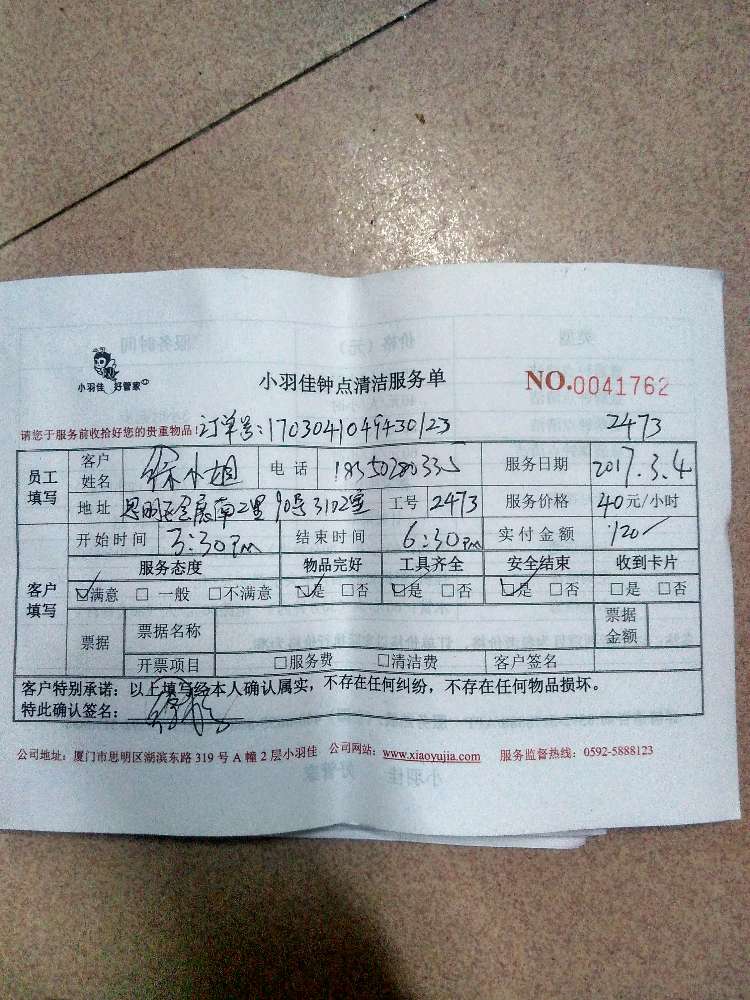 小羽佳 好管家
小羽佳钟点清洁服务单
NO.0041762
请您于服务前收拾好您的贵重物品！订单号：1703041049430123 2473
员工填写 客户姓名 徐小姐 电话 18350280335 服务日期 2017.3.4
地址 思明区会展南2里90号3102室 工号 2473 服务价格 40元/小时
客户填写 开始时间 3:30Pm 结束时间 6:30Pm 实付金额 120
服务态度 物品完好 工具齐全 安全结束 收到卡片
☑满意 □一般 □不满意 ☑是 □否 ☑是 □否 ☑是 □否 □是 □否
票据 票据名称 票据金额
开票项目 □服务费 □清洁费 客户签名
客户特别承诺：以上填写经本人确认属实，不存在任何纠纷，不存在任何物品损坏。
特此确认签名：
公司地址：厦门市思明区湖滨东路 319 号 A 幢 2 层小羽佳 公司网站：www.xiaoyujia.com 服务监督热线：0592-5888123